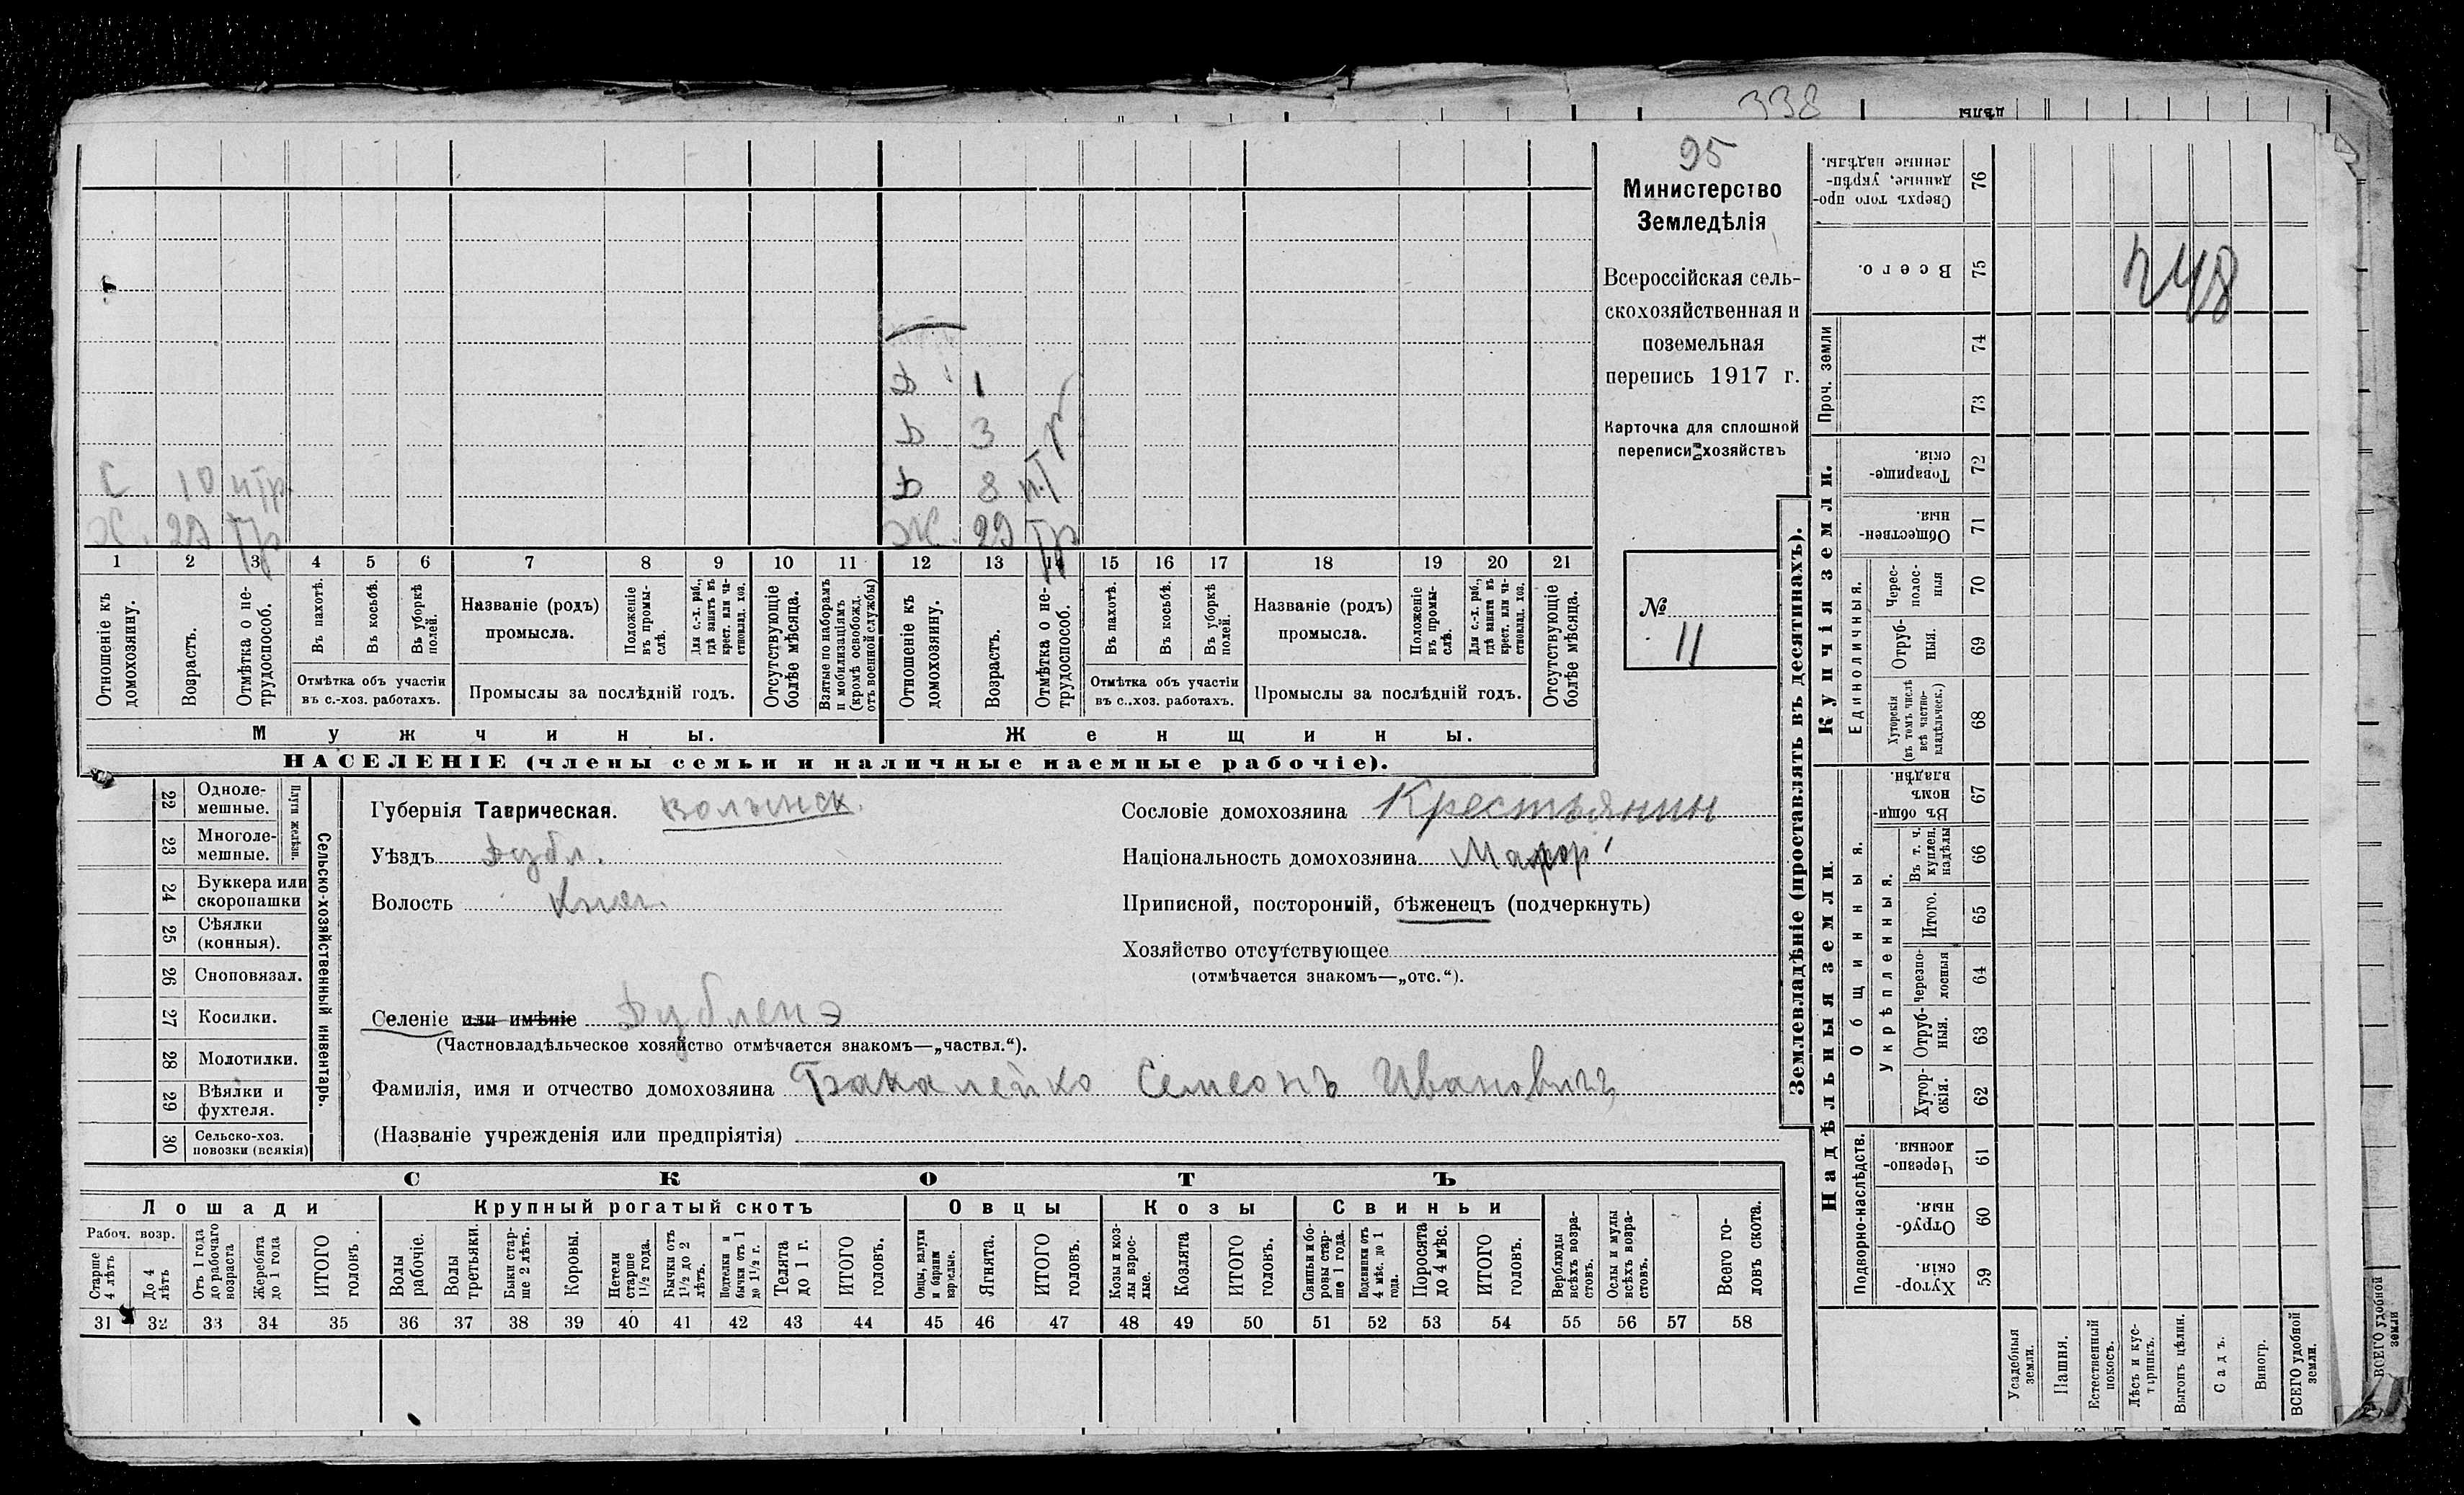 338
дѣлы
95
Министерство
Земледѣлія
Всероссійская сель-
скохозяйственная и
поземельная
перепись 1917 г.
Карточка для сплошной
переписи хозяйствъ
№
11
248
Д 1
Д 3
С 10 нтр.
Д 8 н.т
Х. 29 тр
Ж. 29 тр
1 2 3 4 5 6 7 8 9 10 11 12 13 14 15 16 17 18 19 20 21
Отношеніе къ домохозяину.
Возрастъ.
Отмѣтка о не-трудоспособ.
Въ пахотѣ.
Въ косьбѣ.
Въ уборкѣ полей.
Отмѣтка объ участіи
въ с.-хоз. работахъ.
Названіе (родъ)
промысла.
Положеніе въ промы-слѣ.
Для с.-х. раб., гдѣ занятъ въ крест. или ча-стновлад. хоз.
Промыслы за послѣдній годъ.
Отсутствующіе болѣе мѣсяца.
Взятые по наборамъ и мобилизаціямъ (кромѣ освобожд. отъ военной службы)
Отношеніе къ домохозяину.
Возрастъ.
Отмѣтка о не-трудоспособ.
Въ пахотѣ.
Въ косьбѣ.
Въ уборкѣ полей.
Отмѣтка объ участіи
въ с..хоз. работахъ.
Названіе (родъ)
промысла.
Положеніе въ промы-слѣ.
Для с.-х. раб., гдѣ занята въ крест. или ча-стновлад. хоз.
Промыслы за послѣдній годъ.
Отсутствующіе болѣе мѣсяца.
Мужчины.
Женщины.
НАСЕЛЕНІЕ (члены семьи и наличные наемные рабочіе).
22 Одноле-мешные.
23 Многоле-мешные.
Плуги желѣзн.
24 Буккера или скоропашки
25 Сѣялки (конныя).
26 Сноповязал.
27 Косилки.
28 Молотилки.
29 Вѣялки и фухтеля.
30 Сельско-хоз. повозки (всякія)
Сельско-хозяйственный инвентарь.
Губернія Таврическая. Волынск.
Уѣздъ Дубл.
Волость
Селеніе или имѣніе
(Частновладѣльческое хозяйство отмѣчается знакомъ—„частвл.“).
Фамилія, имя и отчество домохозяина Бакалейко Семеонъ Ивановичъ
(Названіе учрежденія или предпріятія)
Сословіе домохозяина Крестьянин
Національность домохозяина Малор
Приписной, посторонній, бѣженецъ (подчеркнуть)
Хозяйство отсутствующее
(отмѣчается знакомъ—„отс.“).
СКОТЪ
Лошади
Крупный рогатый скотъ
Овцы
Козы
Свиньи
Рабоч. возр.
Старше 4 лѣтъ
До 4 лѣтъ
Отъ 1 года до рабочаго возраста
Жеребята до 1 года
ИТОГО головъ.
Волы рабочіе.
Волы третьяки.
Быки стар-ше 2 лѣтъ.
Коровы.
Нетели старше 1½ года.
Бычки отъ 1½ до 2 лѣтъ.
Подтелки и бычки отъ 1 до 1½ г.
Телята до 1 г.
ИТОГО головъ.
Овцы, валухи и бараны взрослые.
Ягнята.
ИТОГО головъ.
Козы и коз-лы взрос-лые.
Козлята
ИТОГО головъ.
Свиньи и бо-ровы стар-ше 1 года.
Подсвинки отъ 4 мѣс. до 1 года.
Поросята до 4 мѣс.
ИТОГО головъ.
Верблюды всѣхъ возра-стовъ.
Ослы и мулы всѣхъ возра-стовъ.
Всего го-ловъ скота.
31 32 33 34 35 36 37 38 39 40 41 42 43 44 45 46 47 48 49 50 51 52 53 54 55 56 57 58
Землевладѣніе (проставлять въ десятинахъ).
Купчія земли.
Надѣльныя земли.
Сверхъ того про-данные, укрѣп-ленные надѣлы. 76
Всего. 75
Проч. земли
74
73
Товарище-скія. 72
Обществен-ныя. 71
Единоличныя.
Черес-полос-ныя 70
Отруб-ныя. 69
Хуторскія (въ томъ числѣ всѣ частно-владѣльческ.) 68
Общинныя.
Въ общин-номъ владѣн. 67
Укрѣпленныя.
Въ т. ч. куплен. надѣлы 66
Итого. 65
Черезпо-лосныя 64
Отруб-ныя. 63
Хутор-скія. 62
Подворно-наслѣдств.
Черезпо-лосныя. 61
Отруб-ныя. 60
Хутор-скія. 59
Усадебныя земли.
Пашня.
Естественный покосъ.
Лѣсъ и кус-тарникъ.
Выгонъ цѣлин.
Садъ.
Виногр.
ВСЕГО удобной земли.
ВСЕГО удобной земли